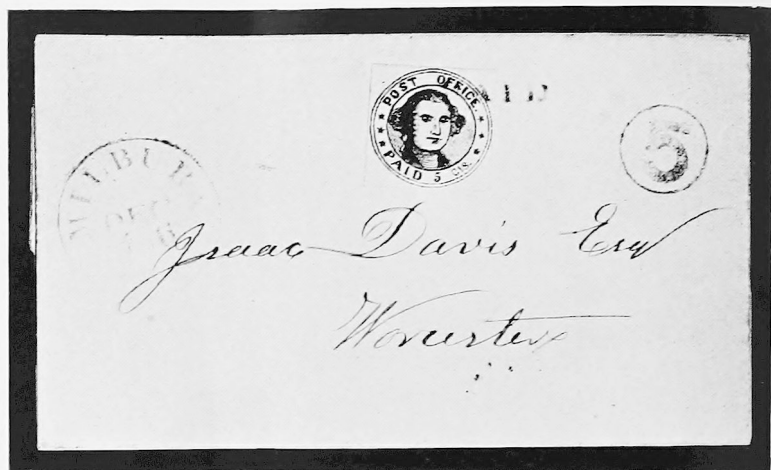 POST OFFICE.
PAID 5 CTS.
5
MILBURY
DEC
Isaac Davis Esq
Worcester